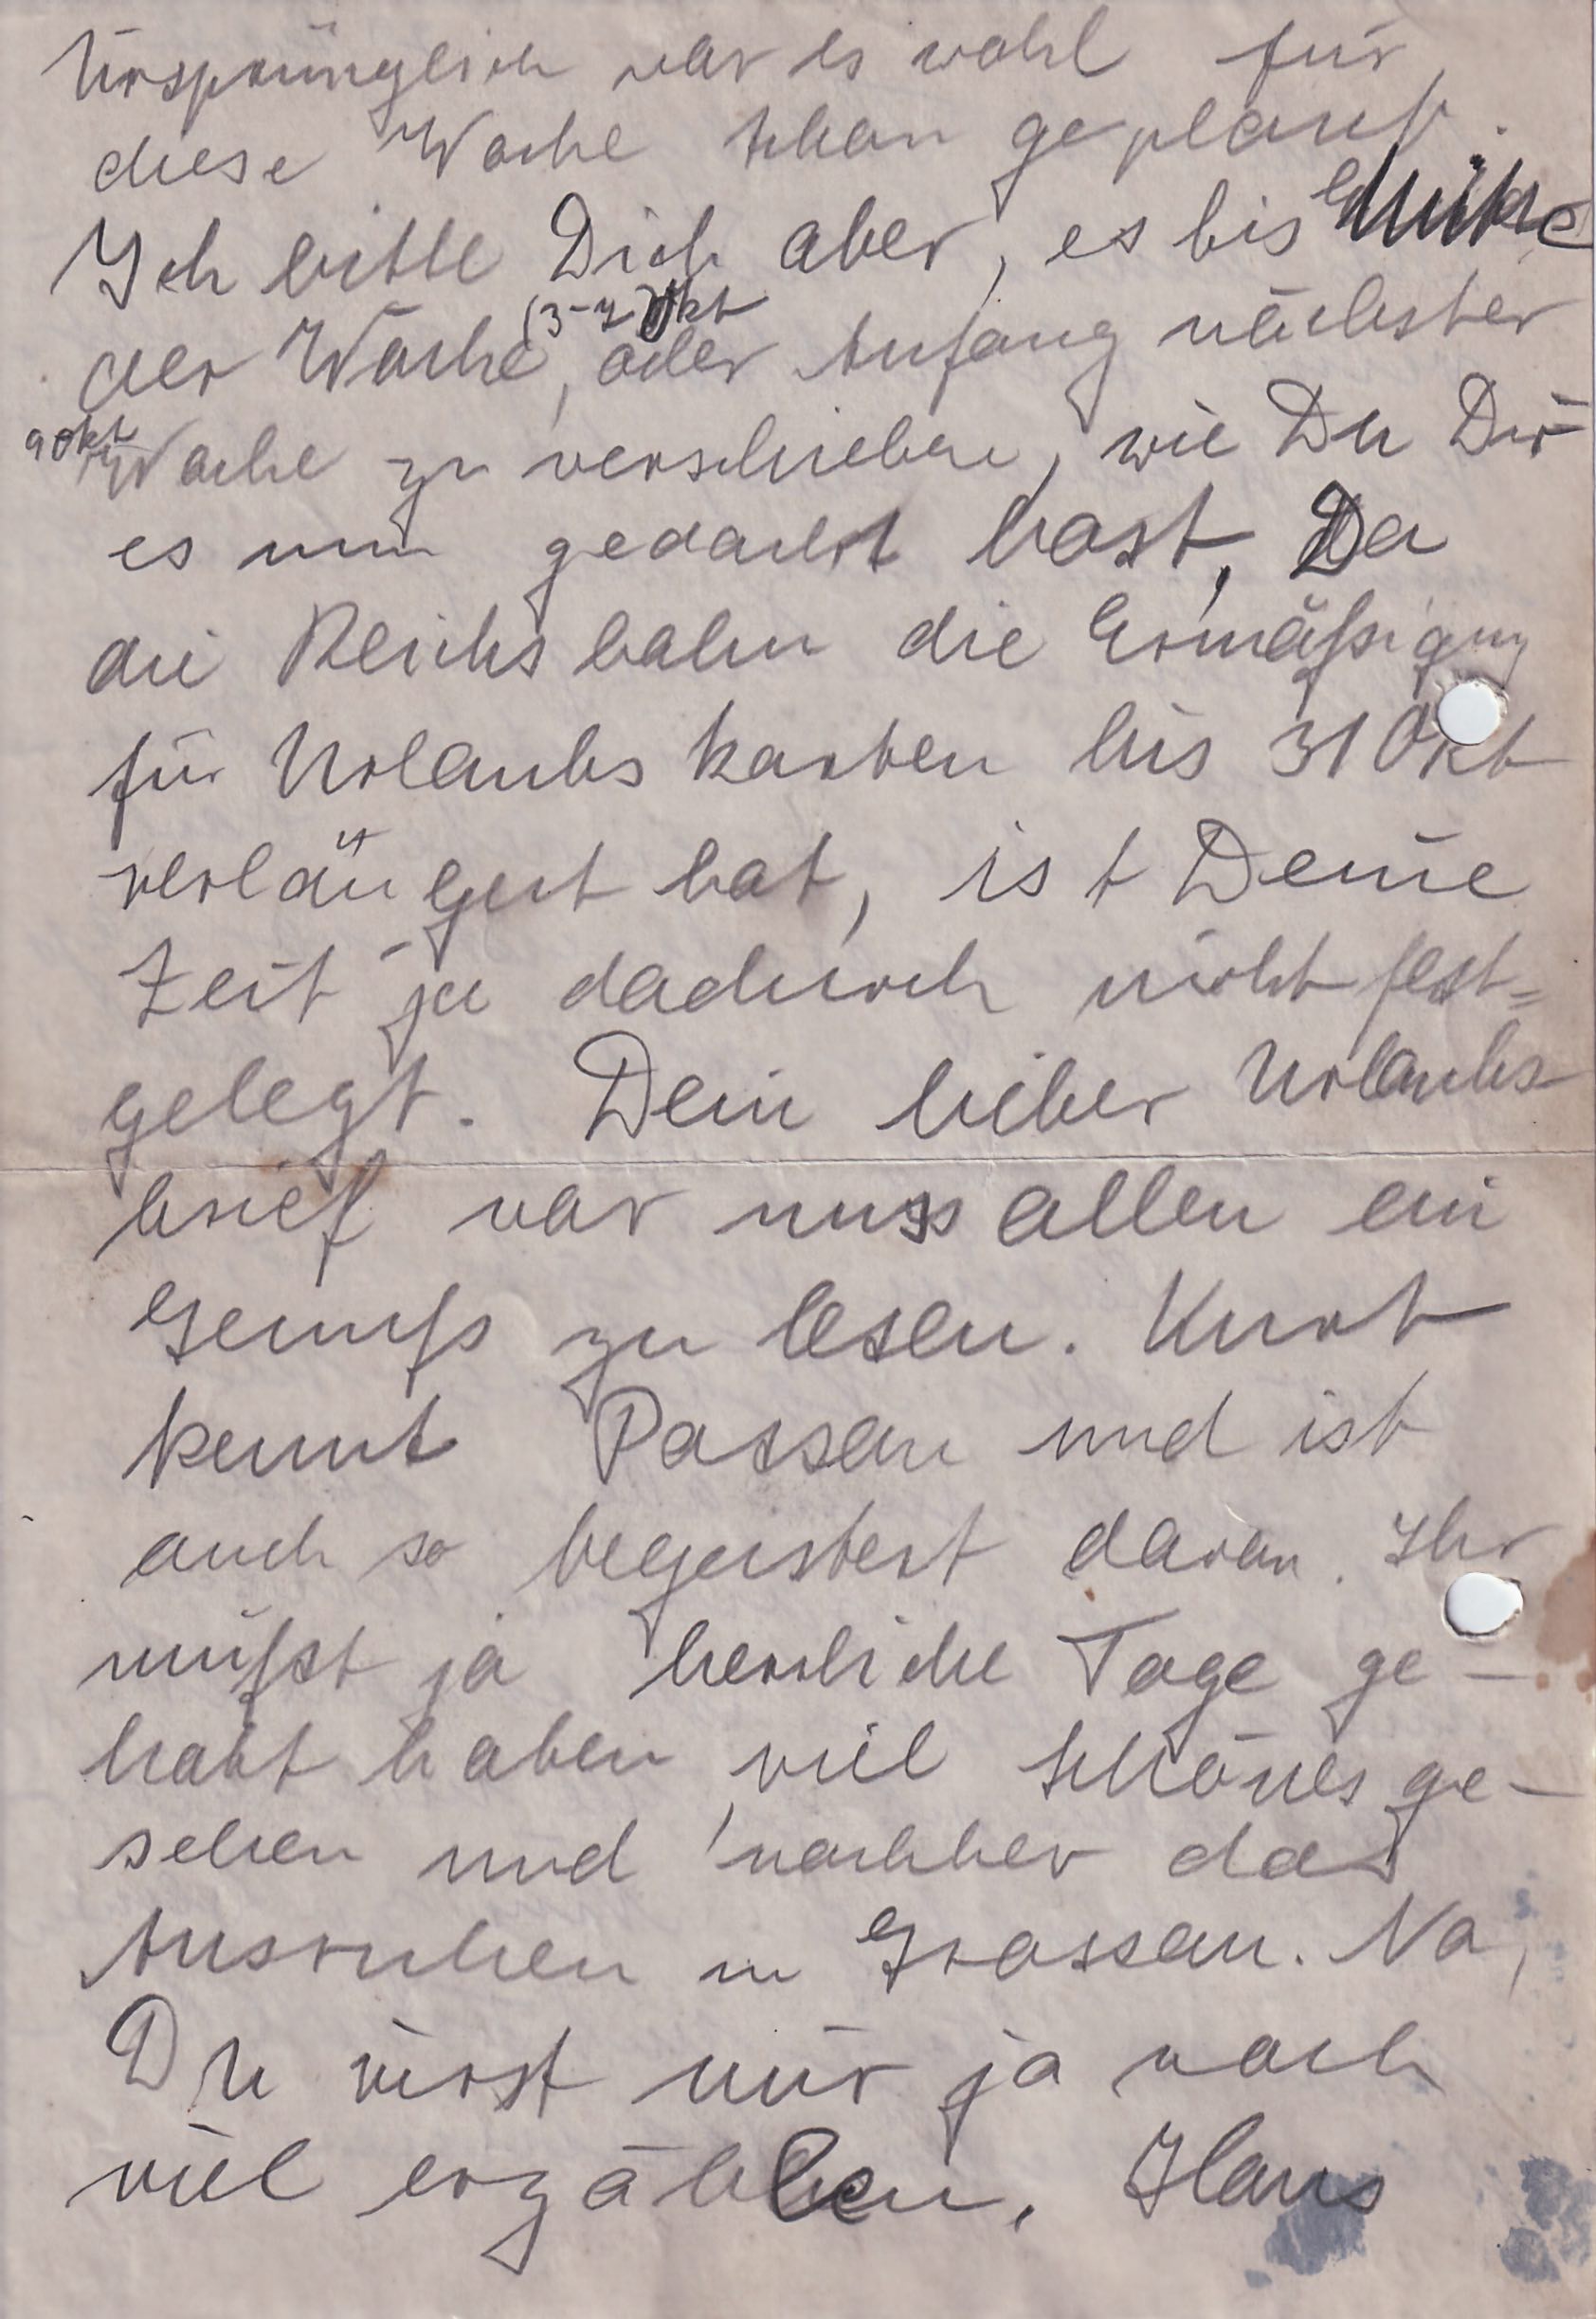 Ursprünglich war es wohl für
diese Woche schon geplant.
Ich bitte Dich aber, es bis Ende
(3-7 Okt
der Woche, oder Anfang nächster
9 Okt
Woche zu verschieben, wie Du Dir
es nun gedacht hast, Da
die Reichsbahn die Ermäßigung
für Urlaubskarten bis 31 Okt
verlängert hat, ist Deine
Zeit ja dadurch nicht fest=
gelegt. Dein lieber Urlaubs
brief war uns allen ein
Genuß zu lesen. Kurt
kennt Passau und ist
auch so begeistert davon. Ihr
müßt ja herrliche Tage ge-
habt haben, viel schönes ge-
sehen und nachher das
Ausruhen in Grassau. Na,
Du wirst mir ja noch
viel erzählen. Hans